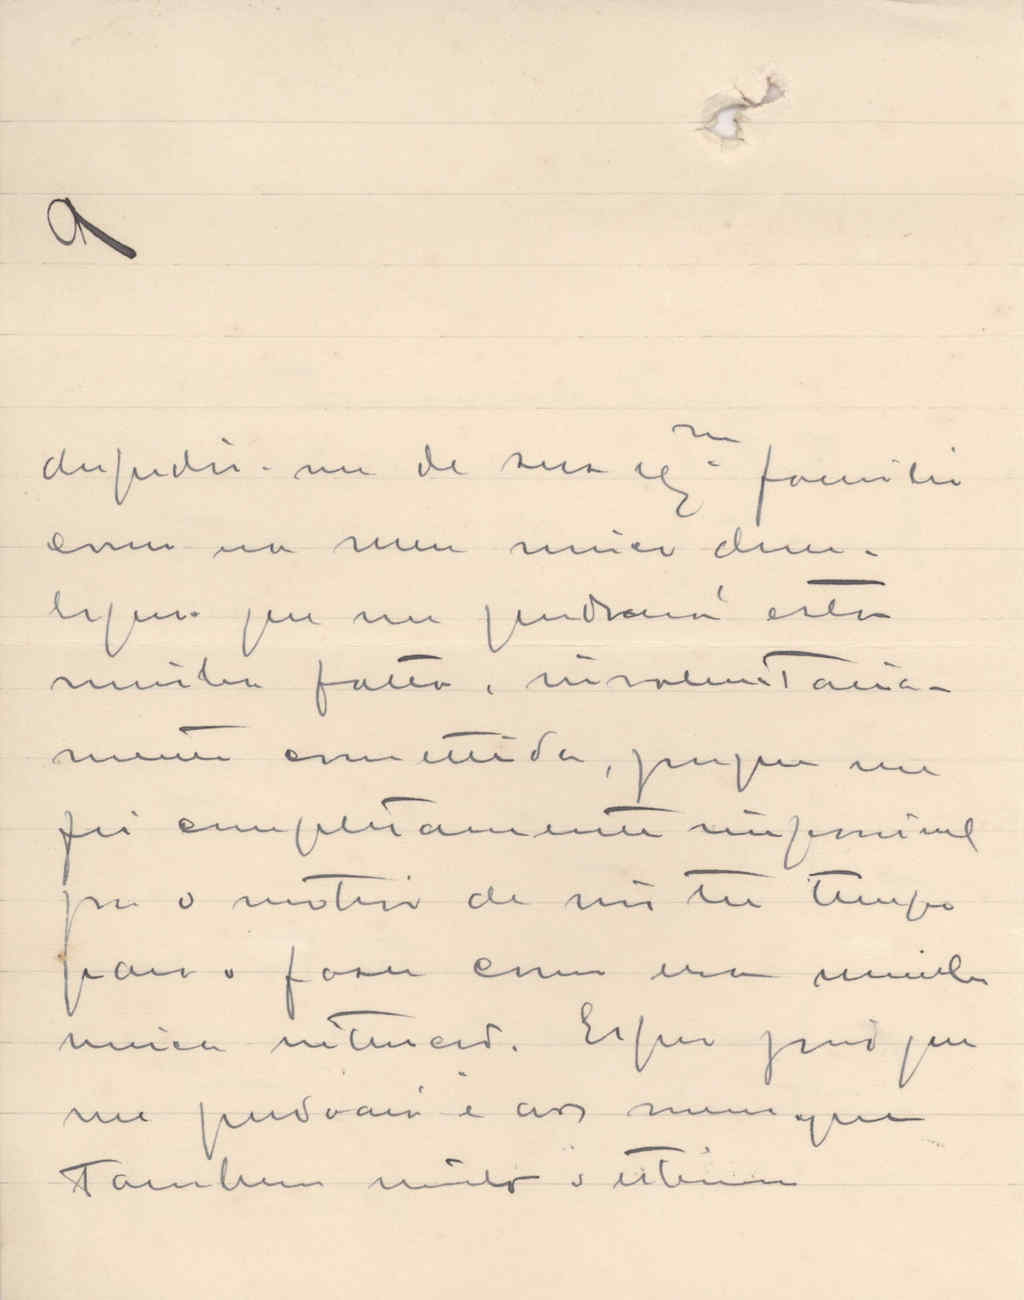 9
despedir-me de sua Exma família
como era meu unico dese-
Espero que me perdoará esta
minha falta, involuntaria-
mente comettida, porque me
foi completamente impossivel
por o motivo de não ter tempo
para o fazer como era minha
unica intenção. Espero pois que
me perdoará e ao mesmo que
Tambem muito o estimo